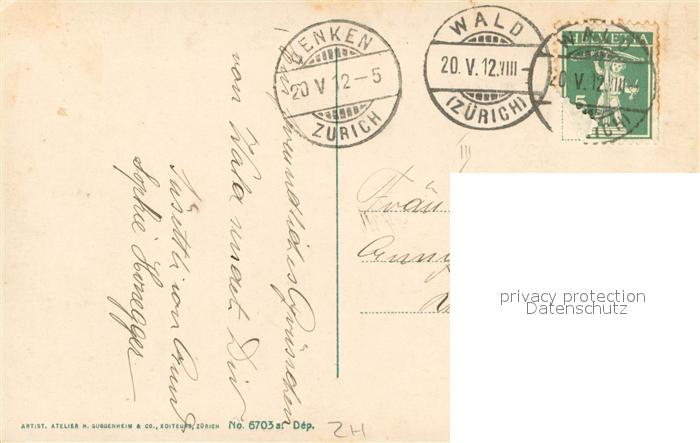 BENKEN
20 V 12-5
ZÜRICH
WALD
20. V. 12. VIII-
(ZÜRICH)
HELVETIA
5
WALD
20. V. 12. VIII
Ein freundliches Grüsschen
von Wald sendet Dir
von
Sophie Honegger
Fräu
privacy protection
Datenschutz
ARTIST. ATELIER H. GUGGENHEIM & CO., EDITEURS, ZÜRICH No. 6703 a. Dép.
ZH